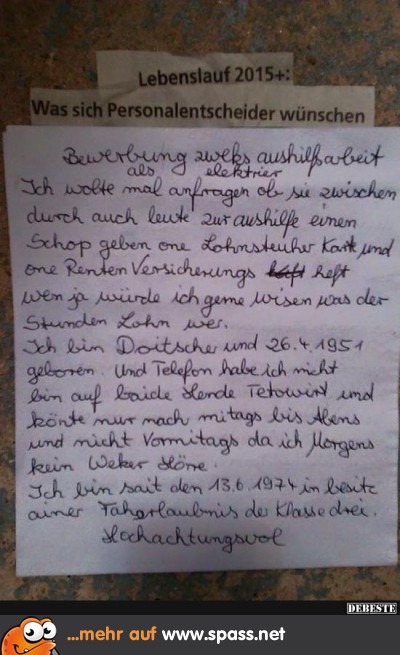 Lebenslauf 2015+:
Was sich Personalentscheider wünschen
Bewerbung zweks aushilfsarbeit
als elektrier
Ich wolte mal anfragen ob sie zwischen
durch auch leute zur aushilfe einen
Schop geben one Lohnsteuher Karte und
one Renten Versicherungs heft
wen ja würde ich gerne wisen was der
Stunden Lohn wer.
Ich bin Doitscher und 26.4.1951
geboren. Und Telefon habe ich nicht
bin auf baide Hende Tetowirt und
könte nur nach mitags bis Abens
und nicht Vormitags da ich Morgens
kein Weker Höre.
Ich bin sait den 13.6.1974 in besitz
ainer Faherlaubnis der Klasse drei.
Hochachtungsvol
DEBESTE
...mehr auf www.spass.net